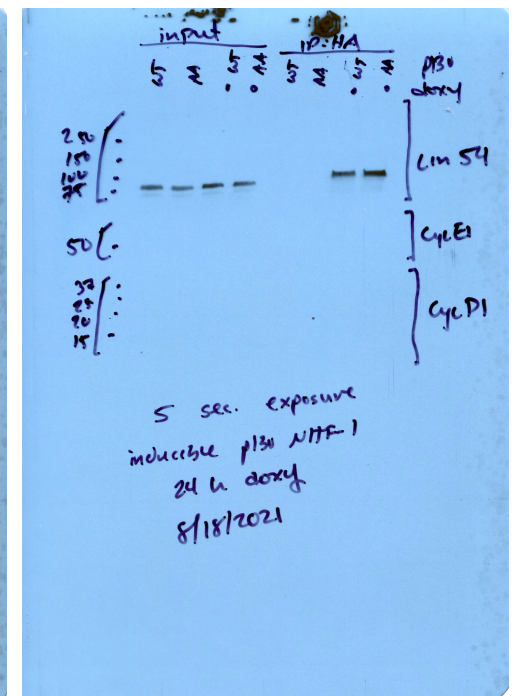 input IP:HA
WT AA WT AA WT AA WT AA p130
• • • • doxy
250
150
100
75
Lin 54
50
CycE1
37
25
20
15
CycD1
5 sec. exposure
inducible p130 NHF-1
24 h doxy
8/18/2021